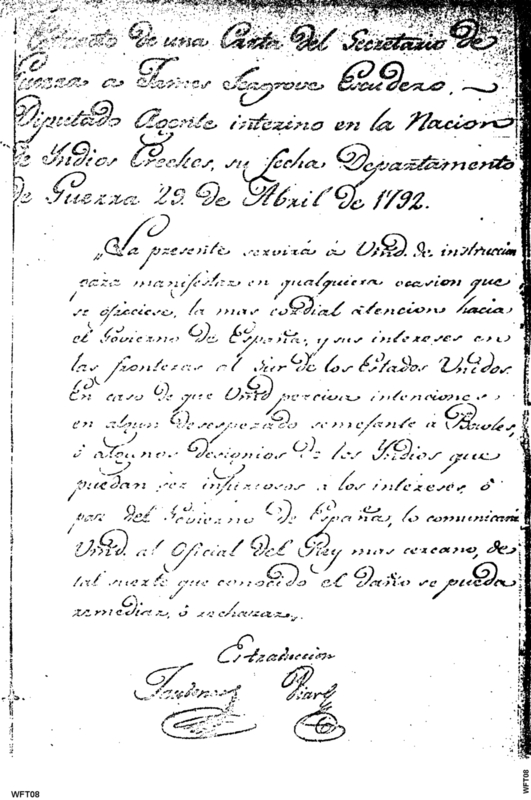 Extracto de una Carta del Secretario de
Guerra a James Seagrove Escudero,
Diputado Agente interino en la Nacion
de Yndios Creekes, su fecha Departamento
de Guerra 29. de Abril de 1792.
„La presente servirá á Vmd. de instruccion
para manifestar en qualquiera ocasion que
se ofreciese, la mas cordial atencion hacia
el Govierno de España, y sus intereses en
las fronteras al Sur de los Estados Unidos.
En caso de que Vmd perciva intenciones
en algun desesperado semejante á Bowles,
ó algunos designios de los Yndios que
puedan ser injuriosos a los intereses, ó
paz del Govierno de España, lo comunicará
Vmd. al Oficial del Rey mas cercano, de
tal suerte que conocido el daño se pueda
remediar, ó rechazar„.
Es traduccion
WFT08
WFT08